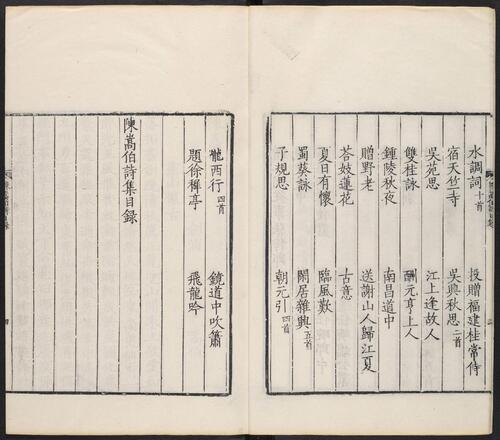 水調詞十首 投贈福建桂常侍
宿天竺寺 吳興秋思二首
吳苑思 江上逢故人
雙桂詠 酬元亨上人
鍾陵秋夜 南昌道中
贈野老 送謝山人歸江夏
荅妓蓮花 古意
夏日有懷 臨風歎
蜀葵詠 閑居雜興五首
子規思 朝元引四首
隴西行四首 鏡道中吹簫
題徐穉亭 飛龍吟
陳嵩伯詩集目錄